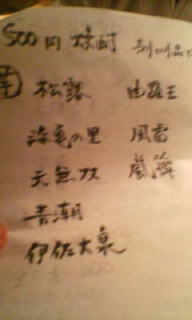 500円 焼酎
芋 松露 由羅王
海亀の里 風雷
天無双 嵐
青潮
伊佐大泉